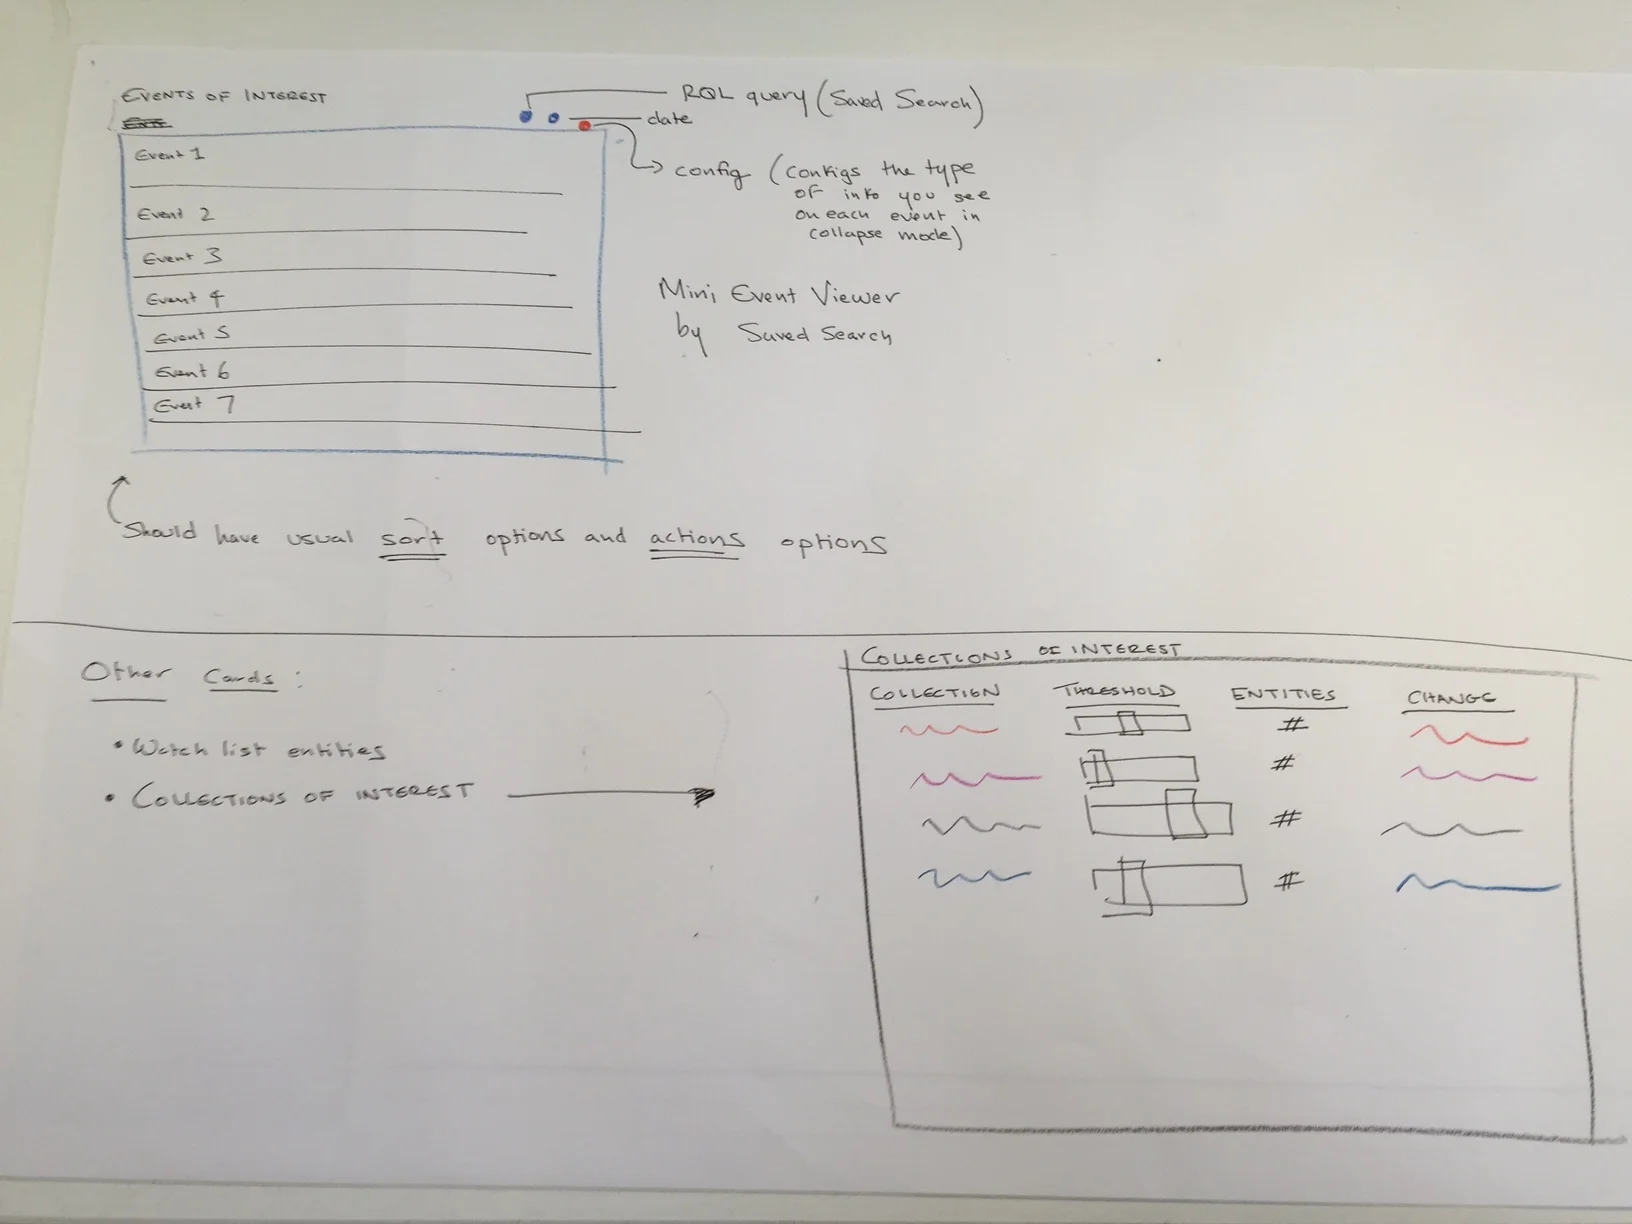 EVENTS OF INTEREST
RQL query (Saved Search)
date
config (configs the type
of info you see
on each event in
collapse mode)
Event 1
Event 2
Event 3
Event 4
Event 5
Event 6
Event 7
Mini Event Viewer
by Saved Search
Should have usual sort options and actions options
Other Cards:
• Watch list entities
• COLLECTIONS OF INTEREST
COLLECTIONS OF INTEREST
COLLECTION THRESHOLD ENTITIES CHANGE
#
#
#
#